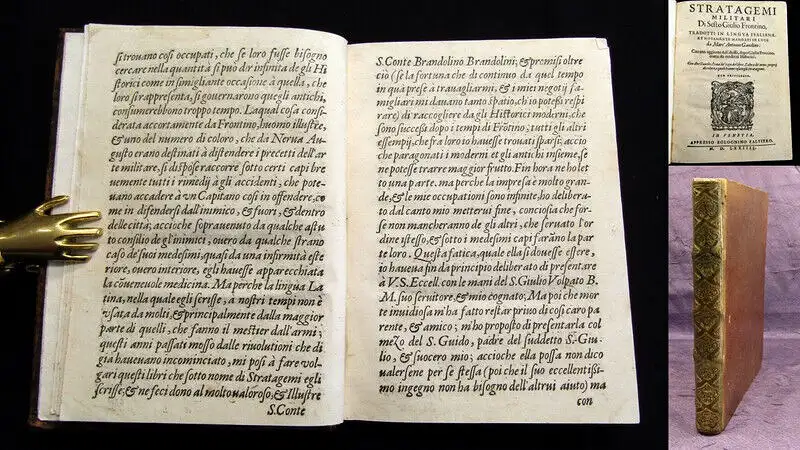 si trouano cosi occupati, che se loro fusse bisogno
cercare nella quantità si può dir infinita de gli Hi
storici come in simigliante occasione à quella, che
loro si rapresenta, si gouernarono quegli antichi,
consumerebbono troppo tempo. Laqual cosa consi
derata accortamente da Frontino, huomo illustre,
& uno del numero di coloro, che da Nerua Au-
gusto erano destinati à difendere i precetti dell'ar
te militare, si dispose raccorre sotto certi capi bre
uemente tutti i rimedij à gli accidenti, che pote-
uano accadere à vn Capitano cosi in offendere, co
me in difendersi dall'inimico, & fuori, & dentro
delle città; accioche soprauenuto da qualche astu
to consilio de gl'inimici, ouero da qualche strano
caso de' suoi medesimi, quasi da una infirmità este
riore, ouero interiore, egli hauesse apparecchiata
la cōueneuole medicina. Ma perche la lingua La
tina, nella quale egli scrisse, a nostri tempi non è
vsata da molti, & principalmente dalla maggior
parte di quelli, che fanno il mestier dall'armi;
questi anni passati mosso dalle riuolutioni che di
gia haueuano incominciato, mi posi à fare vol-
gari questi libri che sotto nome di Stratagemi egli
scrisse; & ne feci dono al molto valoroso, & Illustre
S. Conte
S. Conte Brandolino Brandolini; & promisi oltre
ciò (se la fortuna che di continuo da quel tempo
in quà prese à trauagliarmi, & i miei negotij fa-
migliari mi dauano tanto spatio, ch'io potessi respi
rare) di raccogliere da gli Historici moderni, che
sono successi dopo i tempi di Frōtino; tutti gli altri
essempij, che fra loro hauesse trouati sparsi; accio
che paragonati i moderni et gli antichi insieme, se
ne potesse trarre maggior frutto. Fin hora ne ho let
to una parte, ma perche la impresa è molto gran-
de, & le mie occupationi sono infinite, ho delibera-
to dal canto mio metterui fine, conciosia che for-
se non mancheranno de gli altri, che seruato l'or
dine istesso, & sotto i medesimi capi farāno la par
te loro. Questa fatica, quale ella si douesse essere,
io haueua fin da principio deliberato di presentare
à V. S. Eccell. con le mani del S. Giulio Volpato B.
M. suo seruitore, & mio cognato; Ma poi che mor
te inuidiosa m'ha fatto restar priuo di cosi caro pa
rente, & amico; m'ho proposto di presentarla col
mezo del S. Guido, padre del suddetto S. Giu-
lio, & suocero mio; accioche ella possa non dico
ualersene per se stessa (poi che il suo eccellentissi-
mo ingegno non ha bisogno dell'altrui aiuto) ma
con
STRATAGEMI
MILITARI
Di Sesto Giulio Frontino,
TRADOTTI IN LINGUA ITALIANA,
ET NOVAMENTE MANDATI IN LUCE
da Marc'Antonio Gandino:
CON PRIVILEGIO.
IN VENETIA,
APPRESSO BOLOGNINO ZALTIERO.
M. D. LXXIIII.